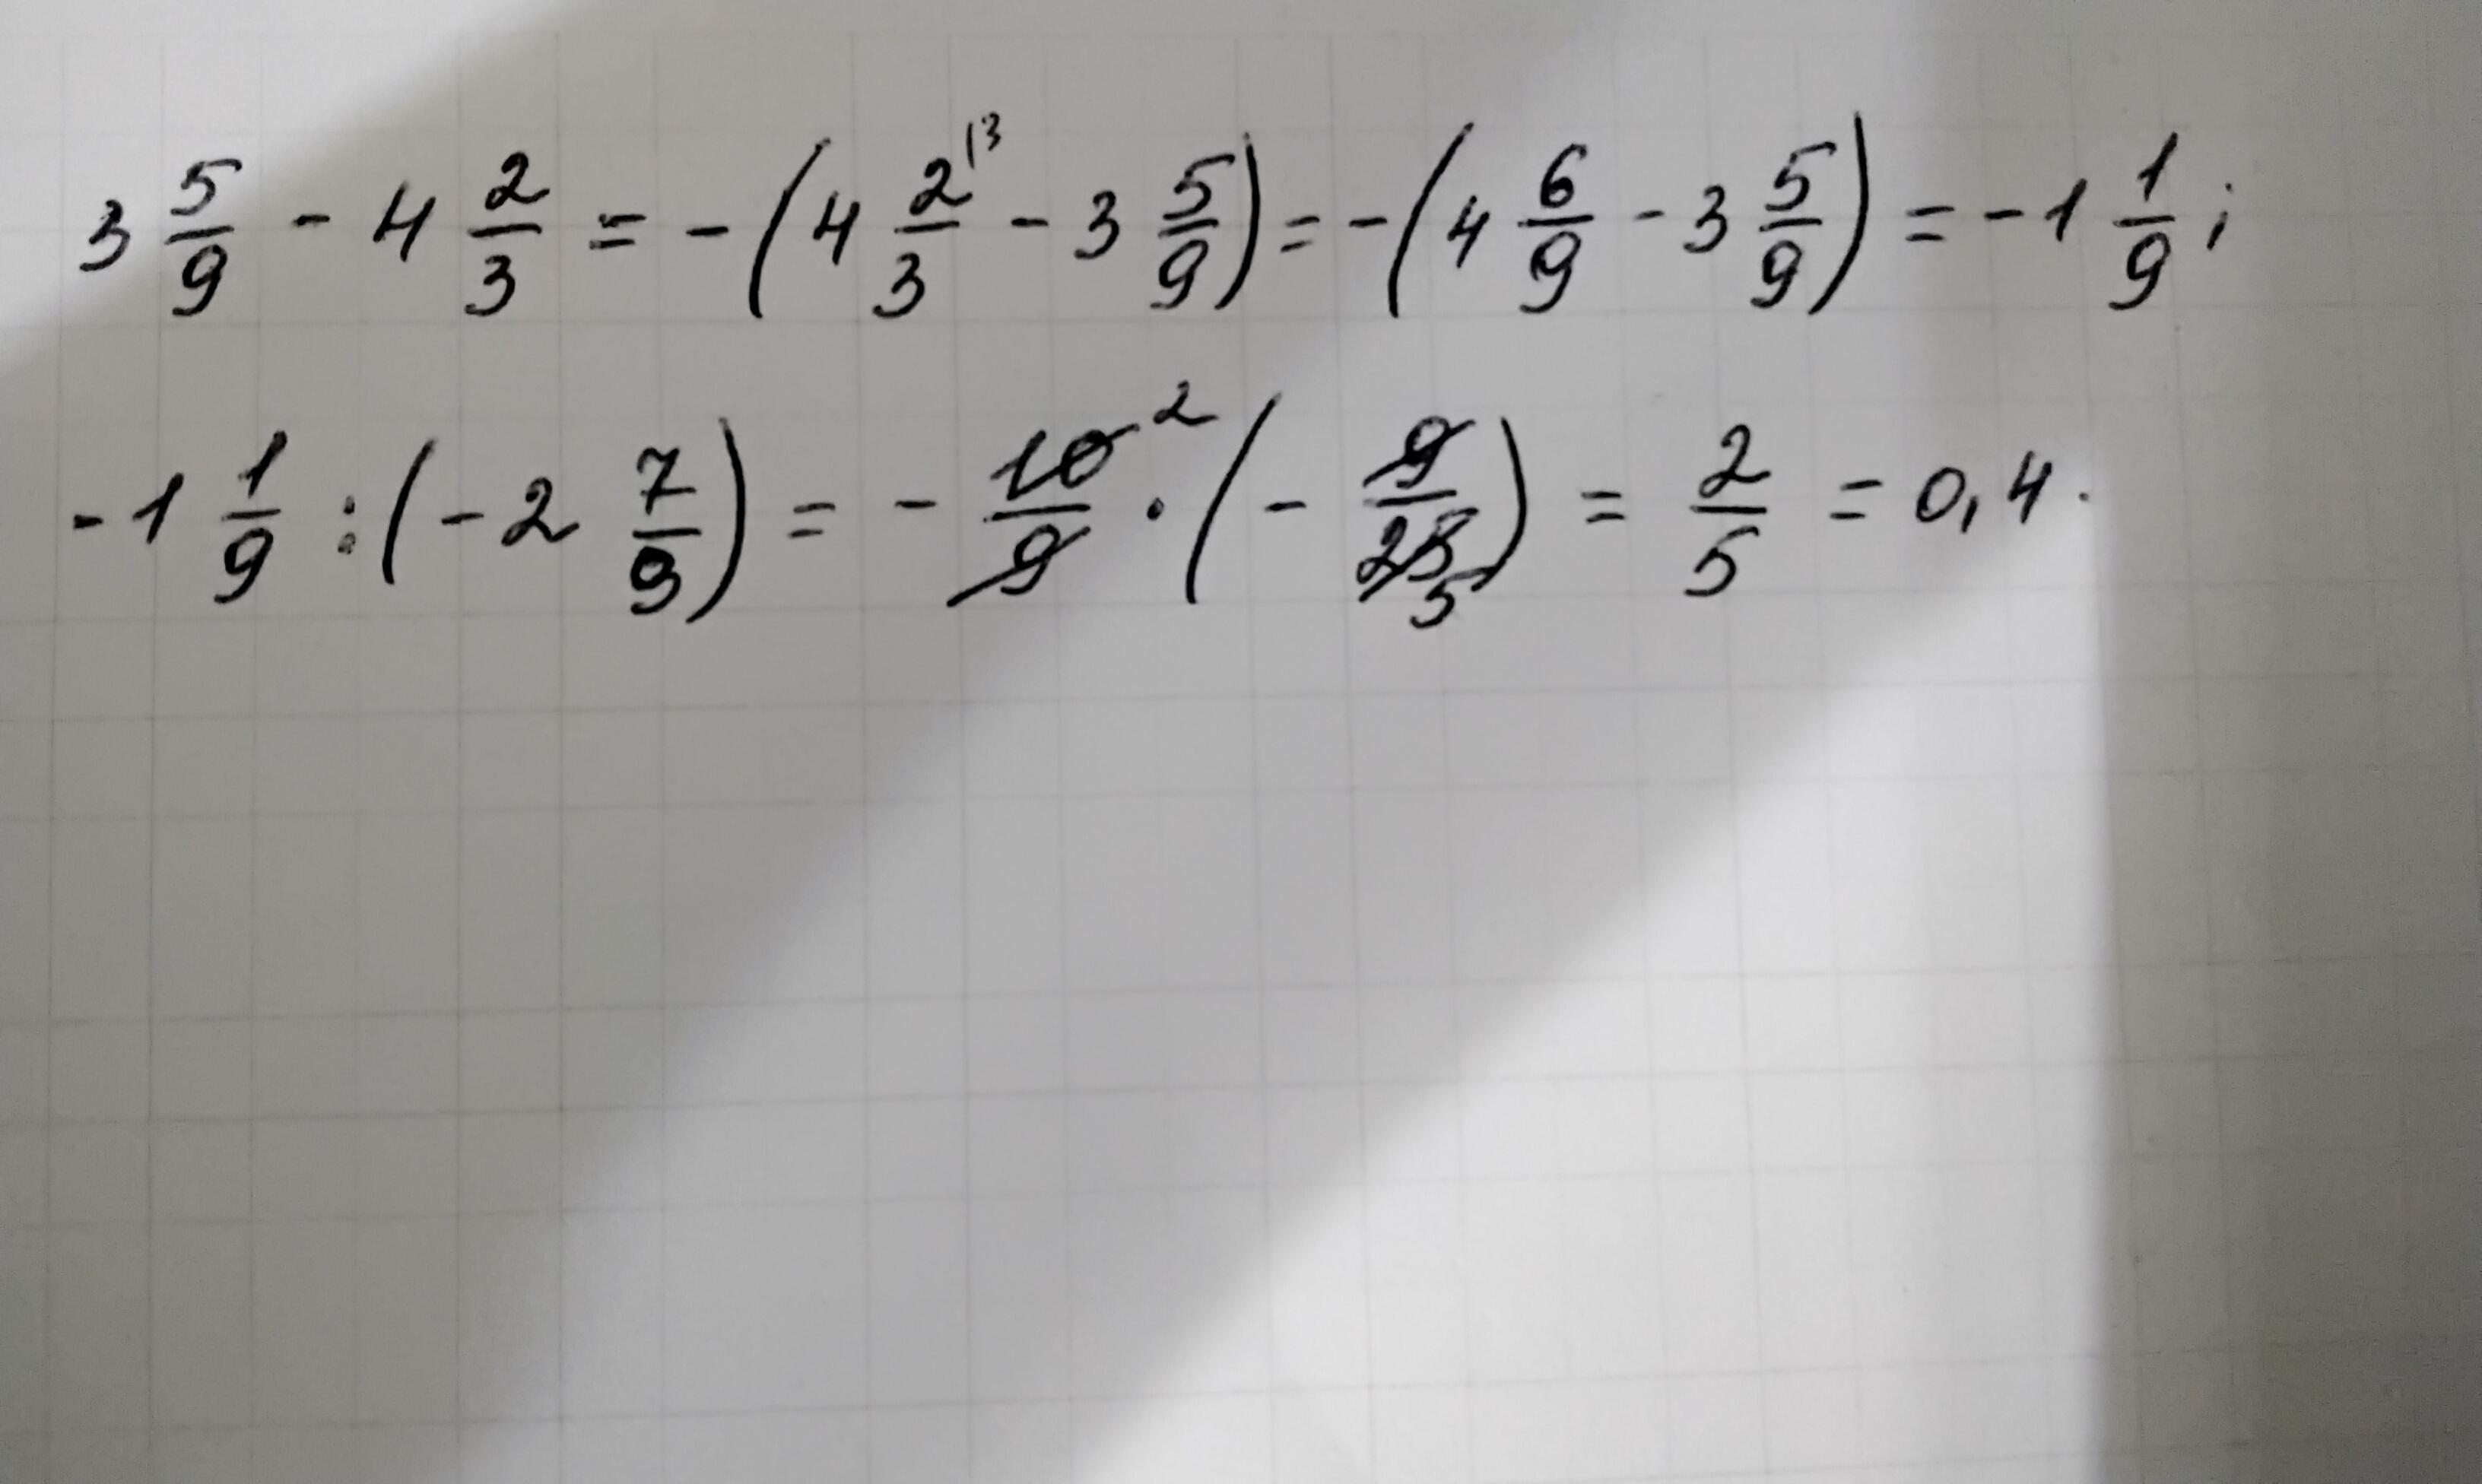 3 5/9 - 4 2/3 = -(4 2/3 ⁽³ - 3 5/9) = -(4 6/9 - 3 5/9) = -1 1/9;
-1 1/9 : (-2 7/9) = - 10 ²/9 · (- 9/25 5) = 2/5 = 0,4.